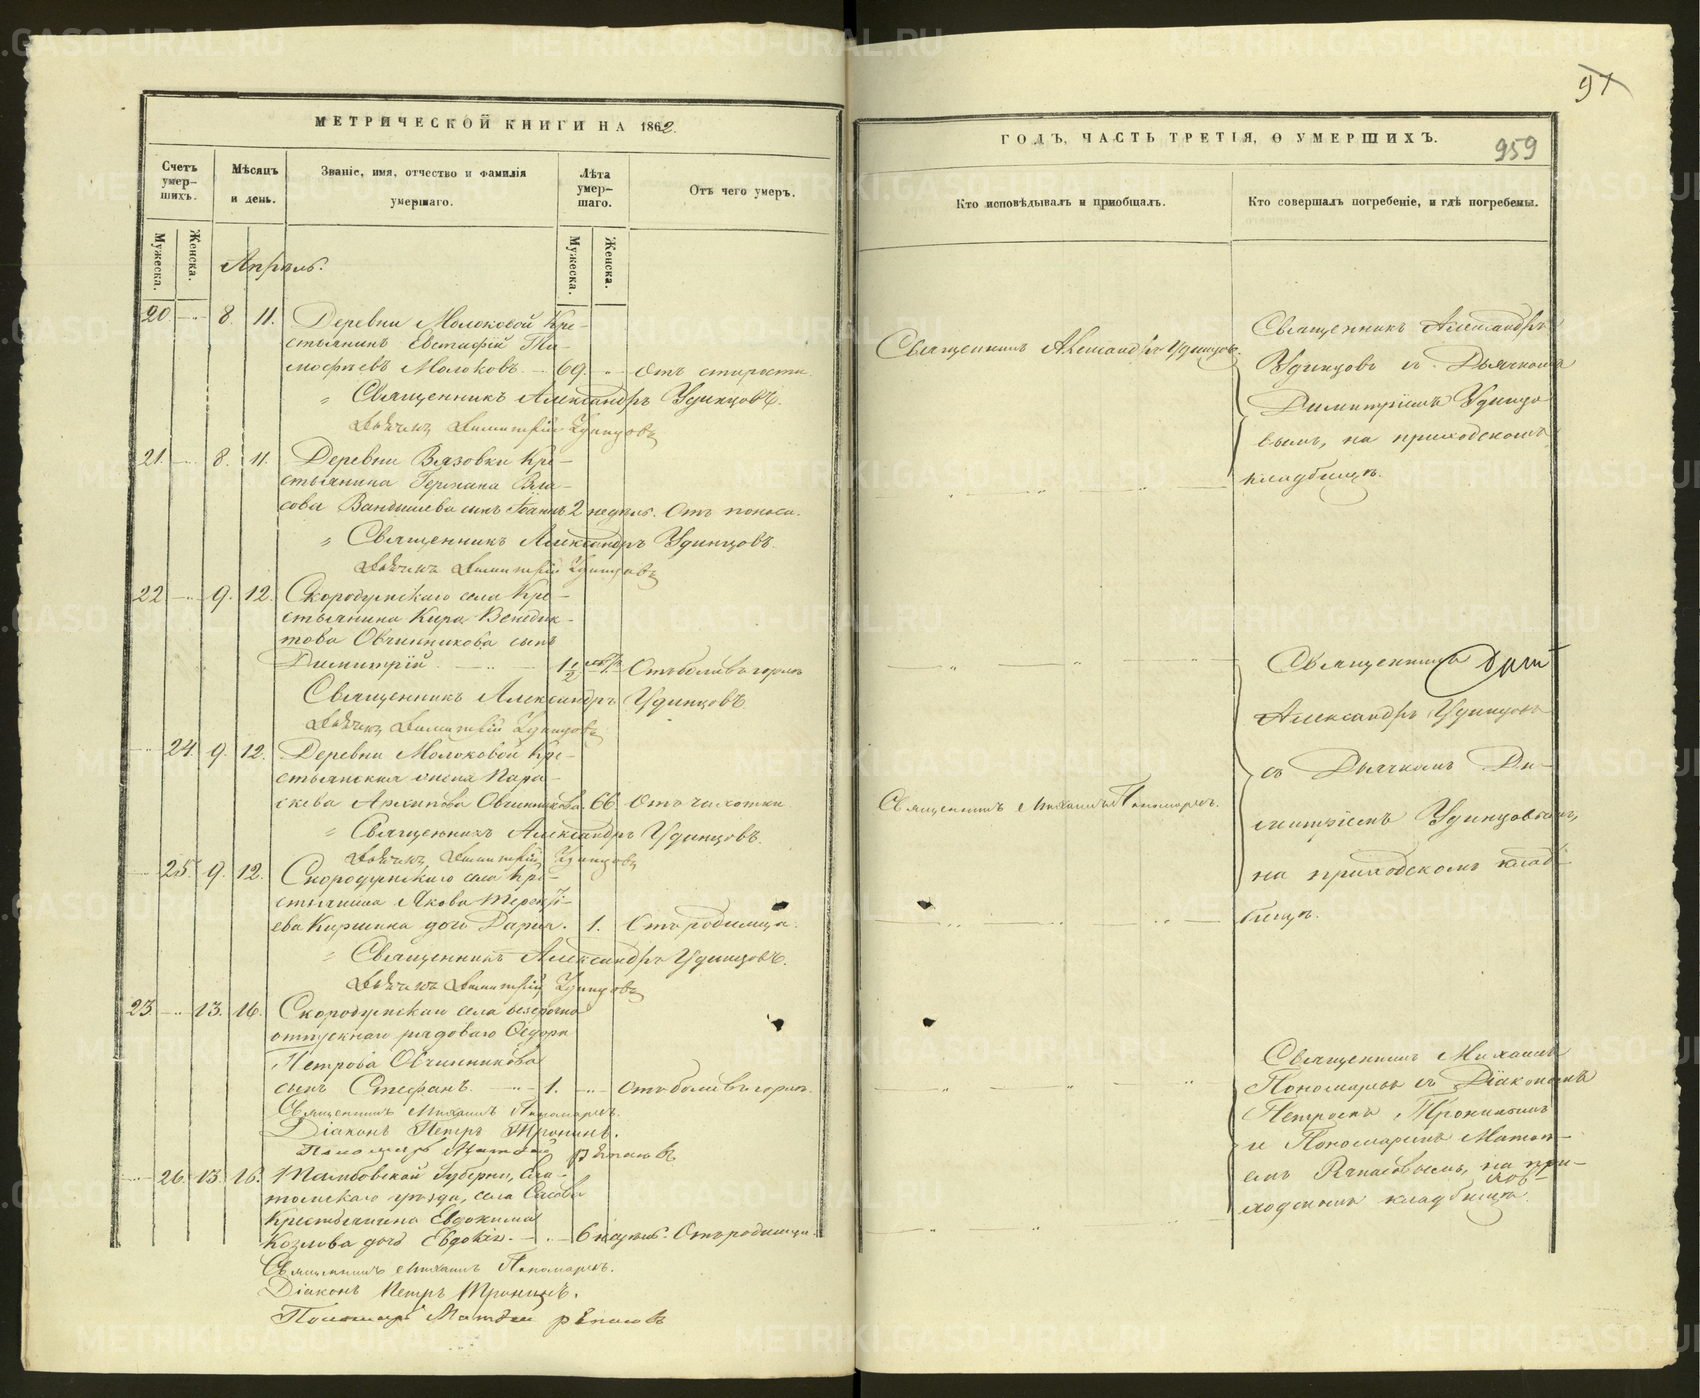 МЕТРИЧЕСКОЙ КНИГИ НА 1862.
Счетъ умер-шихъ.
Мѣсяцъ и день.
Званіе, имя, отчество и фамилія умершаго.
Лѣта умер-шаго.
Отъ чего умеръ.
Мужеска. Женска.
Мужеска. Женска.
Апрѣль.
20 8. 11. Деревни Молоковой Кре-
стьянинъ Евстафій Ти-
мофѣевъ Молоковъ. 69. Отъ старости.
Священникъ Александръ Удинцовъ.
Дьячекъ Димитрій Удинцовъ
21. 8. 11. Деревни Вязовки Кре-
стьянина Германа Вла-
сова сынъ Іоаннъ 2 недѣль. Отъ поноса.
Священникъ Александръ Удинцовъ.
Дьячекъ Димитрій Удинцовъ
22 9. 12. Скородумскаго села Кре-
стьянина Кира Венедик-
това Овчинникова сынъ
Димитрій 1½ Отъ боли въ горлѣ
Священникъ Александръ Удинцовъ.
Дьячекъ Димитрій Удинцовъ
24. 9. 12. Деревни Молоковой Кре-
стьянская Пара-
скева Архипова Овчинникова. 66. Отъ чахотки
Священникъ Александръ Удинцовъ.
Дьячекъ Димитрій Удинцовъ
25. 9. 12. Скородумскаго села Кре-
стьянина Якова Терентьева
дочь Дарья. 1. Отъ родимца.
Священникъ Александръ Удинцовъ.
Дьячекъ Димитрій Удинцовъ
23 13. 16. Скородумскаго села безсрочно
отпускнаго рядоваго Ѳедора
Петрова Овчинникова
сынъ Стефанъ. 1. Отъ боли въ горлѣ.
Священникъ Михаилъ Пономаревъ.
Діаконъ Петръ Тронинъ.
Пономарь Матѳей
26. 13. 16. Тамбовской Губерніи, Ела-
томскаго уѣзда, села Сасова
Крестьянина Евдокима
Козлова дочь Евдокія. 6 недѣль. Отъ родимца.
Священникъ Михаилъ Пономаревъ.
Діаконъ Петръ Тронинъ.
Пономарь Матѳей
91
959
ГОДЪ, ЧАСТЬ ТРЕТІЯ, О УМЕРШИХЪ.
Кто исповѣдывалъ и пріобщалъ.
Кто совершалъ погребеніе, и гдѣ погребены.
Священникъ Александръ Удинцовъ.
Священникъ Александръ
Удинцовъ съ Дьячкомъ
Димитріемъ Удинцо-
вымъ, на приходскомъ
кладбищѣ.
Священникъ Михаилъ Пономаревъ.
Священникъ
Александръ Удинцовъ
съ Дьячкомъ Ди-
митріемъ Удинцовымъ,
на приходскомъ клад-
бищѣ.
Священникъ Михаилъ
Пономаревъ съ Діакономъ
Петромъ Тронинымъ
и Пономаремъ Матѳе-
емъ на при-
ходскомъ кладбищѣ.
METRIKI.GASO-URAL.RU